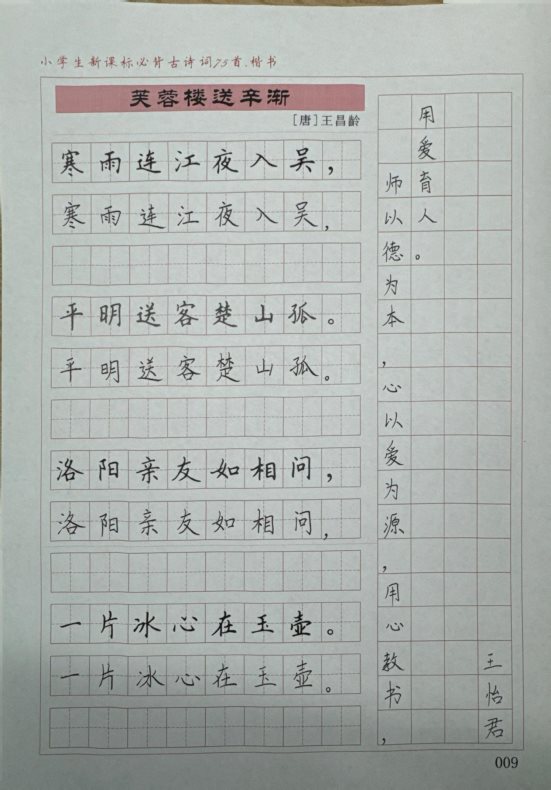 小学生新课标必背古诗词75首.楷书
芙蓉楼送辛渐
[唐]王昌龄
寒雨连江夜入吴，
寒雨连江夜入吴，
平明送客楚山孤。
平明送客楚山孤。
洛阳亲友如相问，
洛阳亲友如相问，
一片冰心在玉壶。
一片冰心在玉壶。
师以德为本，心以爱为源，用心教书，
用爱育人。
王怡君
009